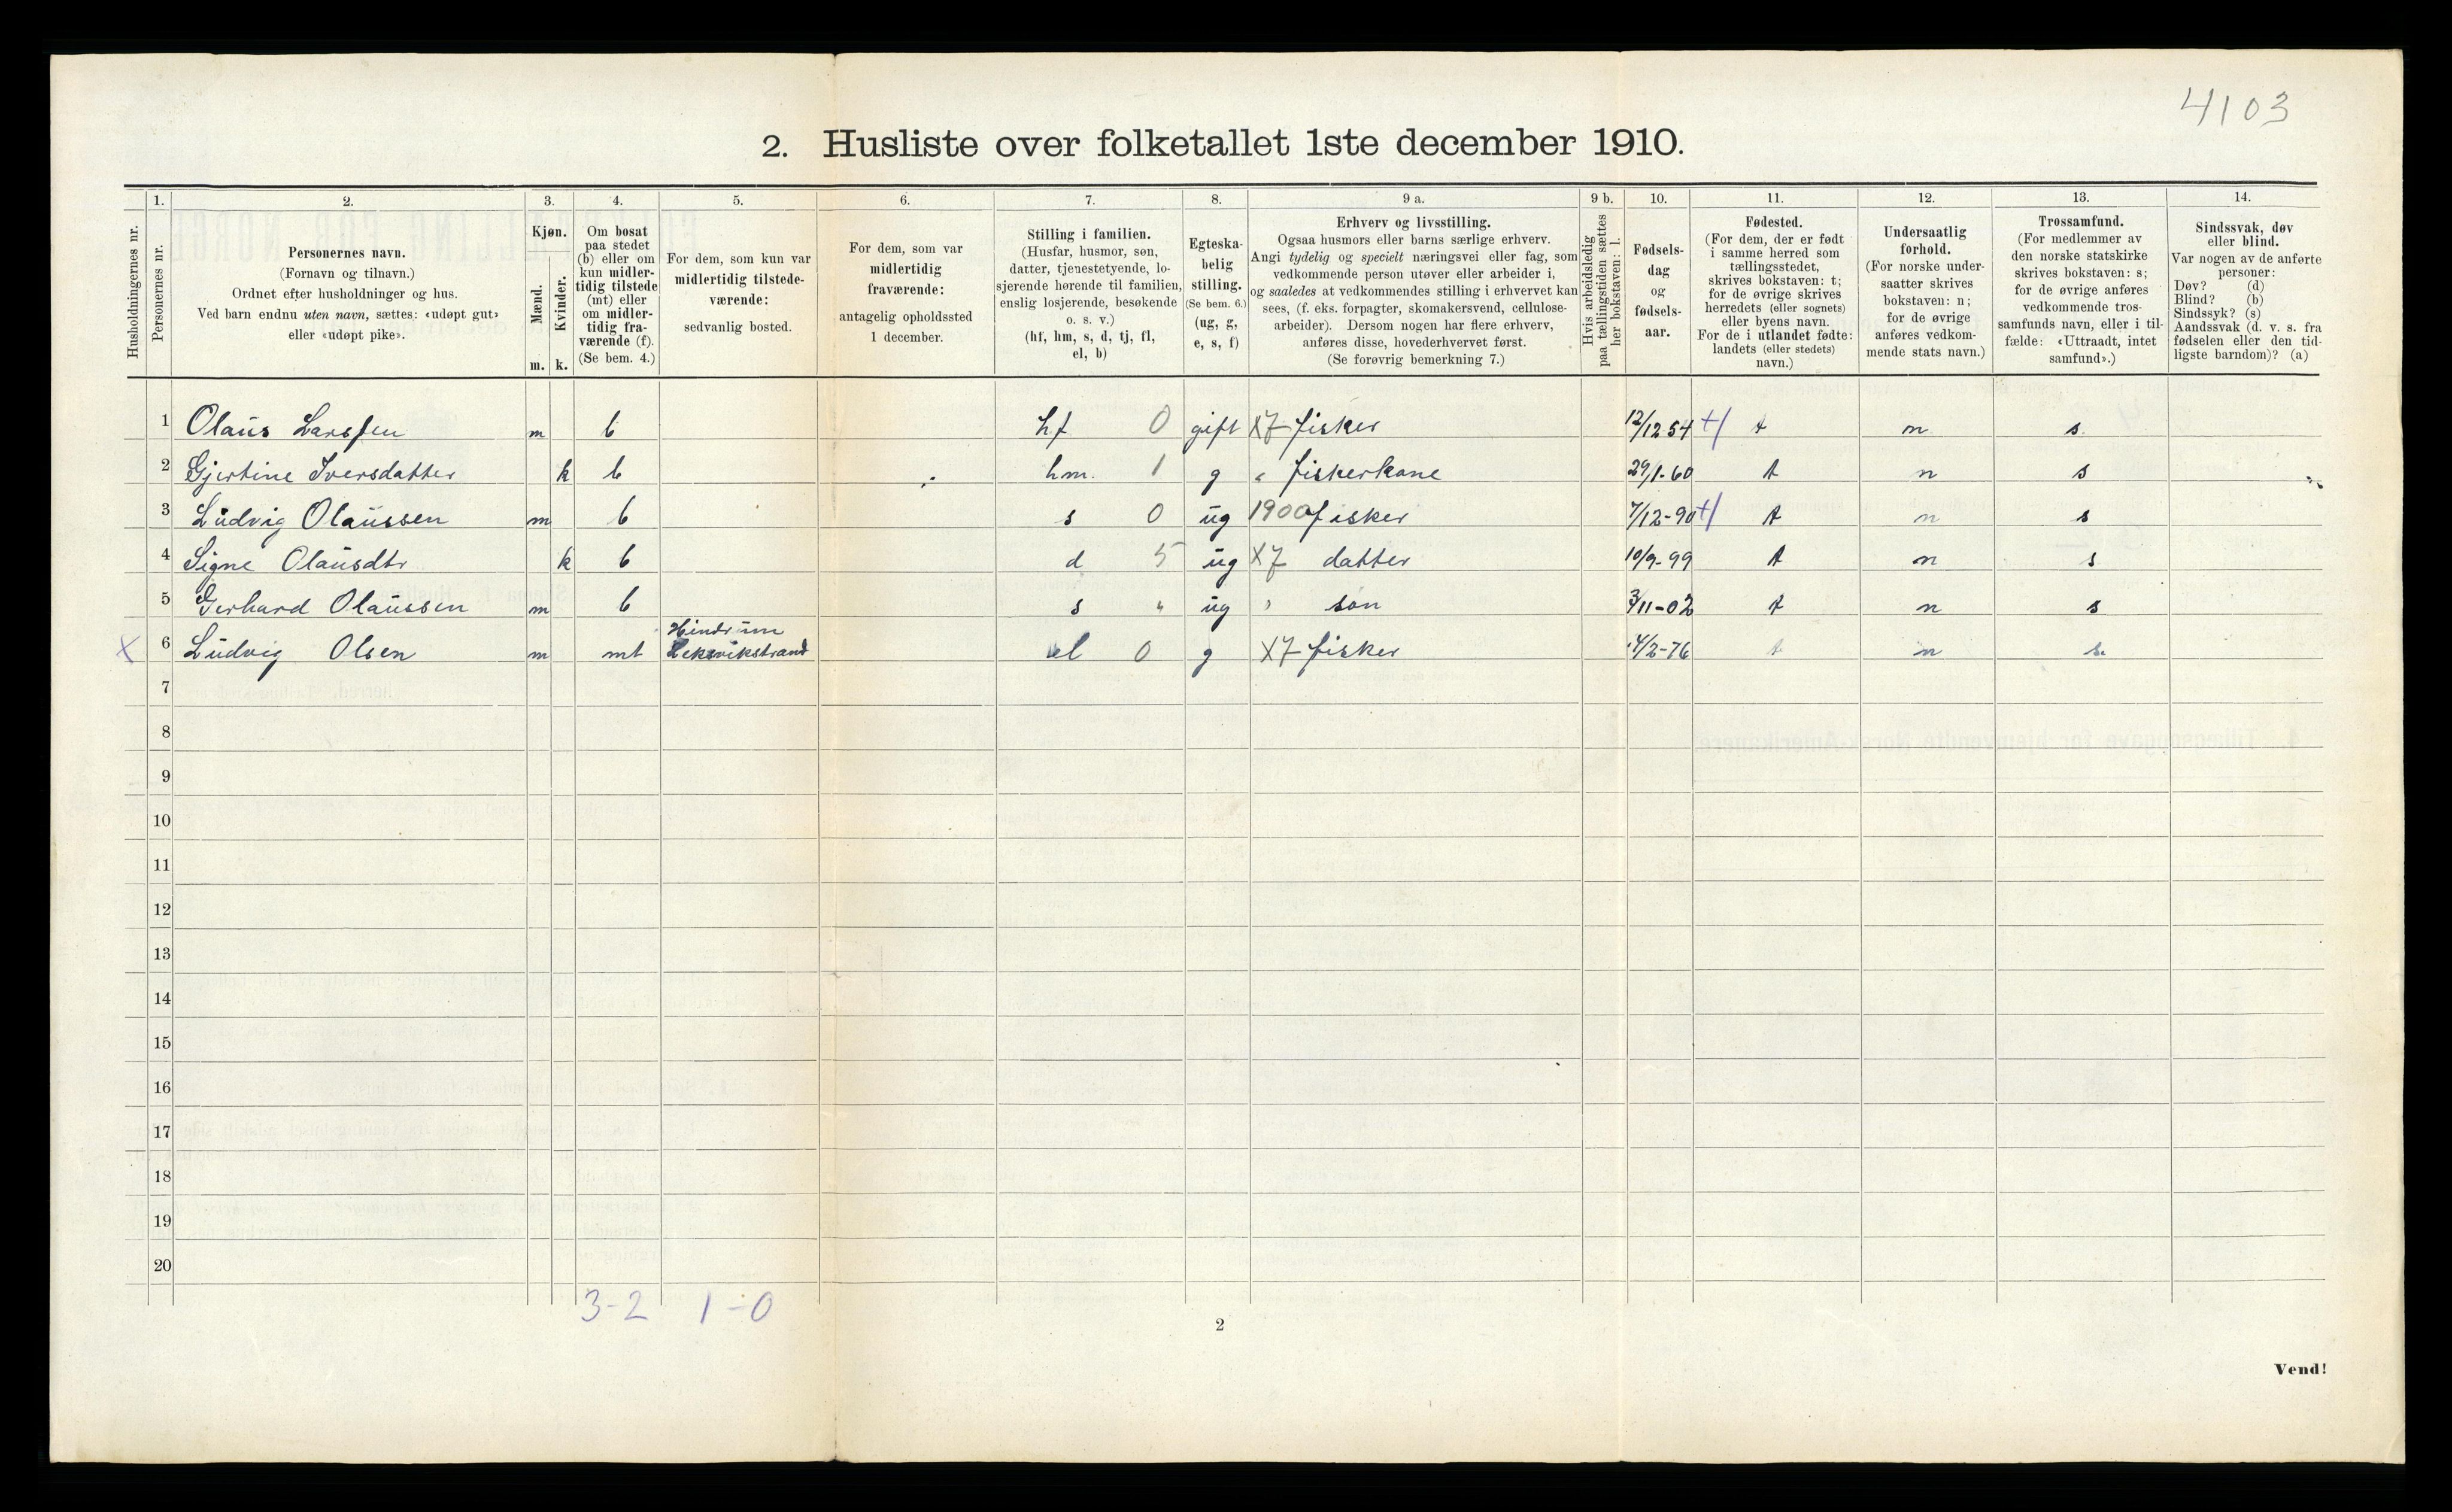 4103
2. Husliste over folketallet 1ste december 1910.
Husholdningernes nr.
1.
Personernes nr.
2.
Personernes navn.
(Fornavn og tilnavn.)
Ordnet efter husholdninger og hus.
Ved barn endnu uten navn, sættes: «udøpt gut»
eller «udøpt pike».
3.
Kjøn.
Mænd.
Kvinder.
m. k.
4.
Om bosat
paa stedet
(b) eller om
kun midler-
tidig tilstede
(mt) eller
om midler-
tidig fra-
værende (f).
(Se bem. 4.)
5.
For dem, som kun var
midlertidig tilstede-
værende:
sedvanlig bosted.
6.
For dem, som var
midlertidig
fraværende:
antagelig opholdssted
1 december.
7.
Stilling i familien.
(Husfar, husmor, søn,
datter, tjenestetyende, lo-
sjerende hørende til familien,
enslig losjerende, besøkende
o. s. v.)
(hf, hm, s, d, tj, fl,
el, b)
8.
Egteska-
belig
stilling.
(Se bem. 6.)
(ug, g,
e, s, f)
9 a.
Erhverv og livsstilling.
Ogsaa husmors eller barns særlige erhverv.
Angi tydelig og specielt næringsvei eller fag, som
vedkommende person utøver eller arbeider i,
og saaledes at vedkommendes stilling i erhvervet kan
sees, (f. eks. forpagter, skomakersvend, cellulose-
arbeider). Dersom nogen har flere erhverv,
anføres disse, hovederhvervet først.
(Se forøvrig bemerkning 7.)
9 b.
Hvis arbeidsledig
paa tællingstiden sættes
her bokstaven: l.
10.
Fødsels-
dag
og
fødsels-
aar.
11.
Fødested.
(For dem, der er født
i samme herred som
tællingsstedet,
skrives bokstaven: t;
for de øvrige skrives
herredets (eller sognets)
eller byens navn.
For de i utlandet fødte:
landets (eller stedets)
navn.)
12.
Undersaatlig
forhold.
(For norske under-
saatter skrives
bokstaven: n;
for de øvrige
anføres vedkom-
mende stats navn.)
13.
Trossamfund.
(For medlemmer av
den norske statskirke
skrives bokstaven: s;
for de øvrige anføres
vedkommende tros-
samfunds navn, eller i til-
fælde: «Uttraadt, intet
samfund».)
14.
Sindssvak, døv
eller blind.
Var nogen av de anførte
personer:
Døv? (d)
Blind? (b)
Sindssyk? (s)
Aandssvak (d. v. s. fra
fødselen eller den tid-
ligste barndom)? (a)
1 Olaus Larssen m b hf 0 gift X7 fisker 12/12 54 t n s.
2 Gjertine Iversdatter k b hm. 1 g " fiskerkone 29/1-60 t n s
3 Ludvig Olaussen m b s 0 ug 1900 fisker 7/12-90 t n s
4 Signe Olausdtr k b d 5 ug X7 datter 10/9-99 t n s
5 Gerhard Olaussen m b s " ug " søn 3/11-02 t n s
Hindrum
X 6 Ludvig Olsen m mt Leksvikstrand el 0 g X7 fisker 14/2-76 t n s.
7
8
9
10
11
12
13
14
15
16
17
18
19
20
3-2 1-0
2
Vend!